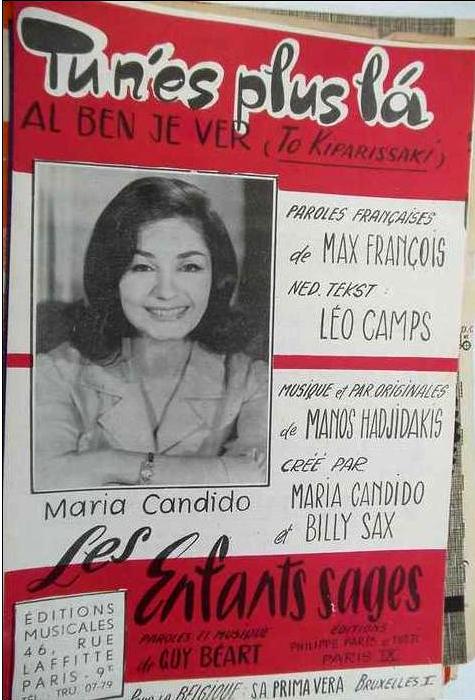 Tu n'es plus là
AL BEN JE VER (To KIPARISSAKI)
PAROLES FRANÇAISES
de MAX FRANÇOIS
NED. TEKST :
LÉO CAMPS
MUSIQUE et PAR ORIGINALES
de MANOS HADJIDAKIS
CRÉÉ PAR
MARIA CANDIDO
et BILLY SAX
Maria Candido
Les Enfants sages
PAROLES ET MUSIQUE
de GUY BÉART
ÉDITIONS
PHILIPPE PARÈS et
PARIS IX
ÉDITIONS
MUSICALES
46, RUE
LAFFITTE
PARIS-9e
TRU. 07-79
POUR LA BELGIQUE: SA PRIMAVERA BRUXELLES I